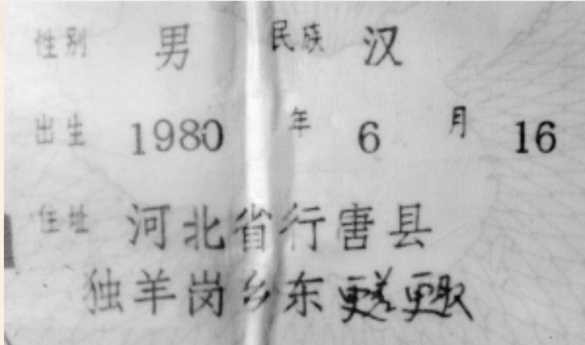 性别 男 民族 汉
出生 1980 年 6 月 16
住址 河北省行唐县
独羊岗乡东